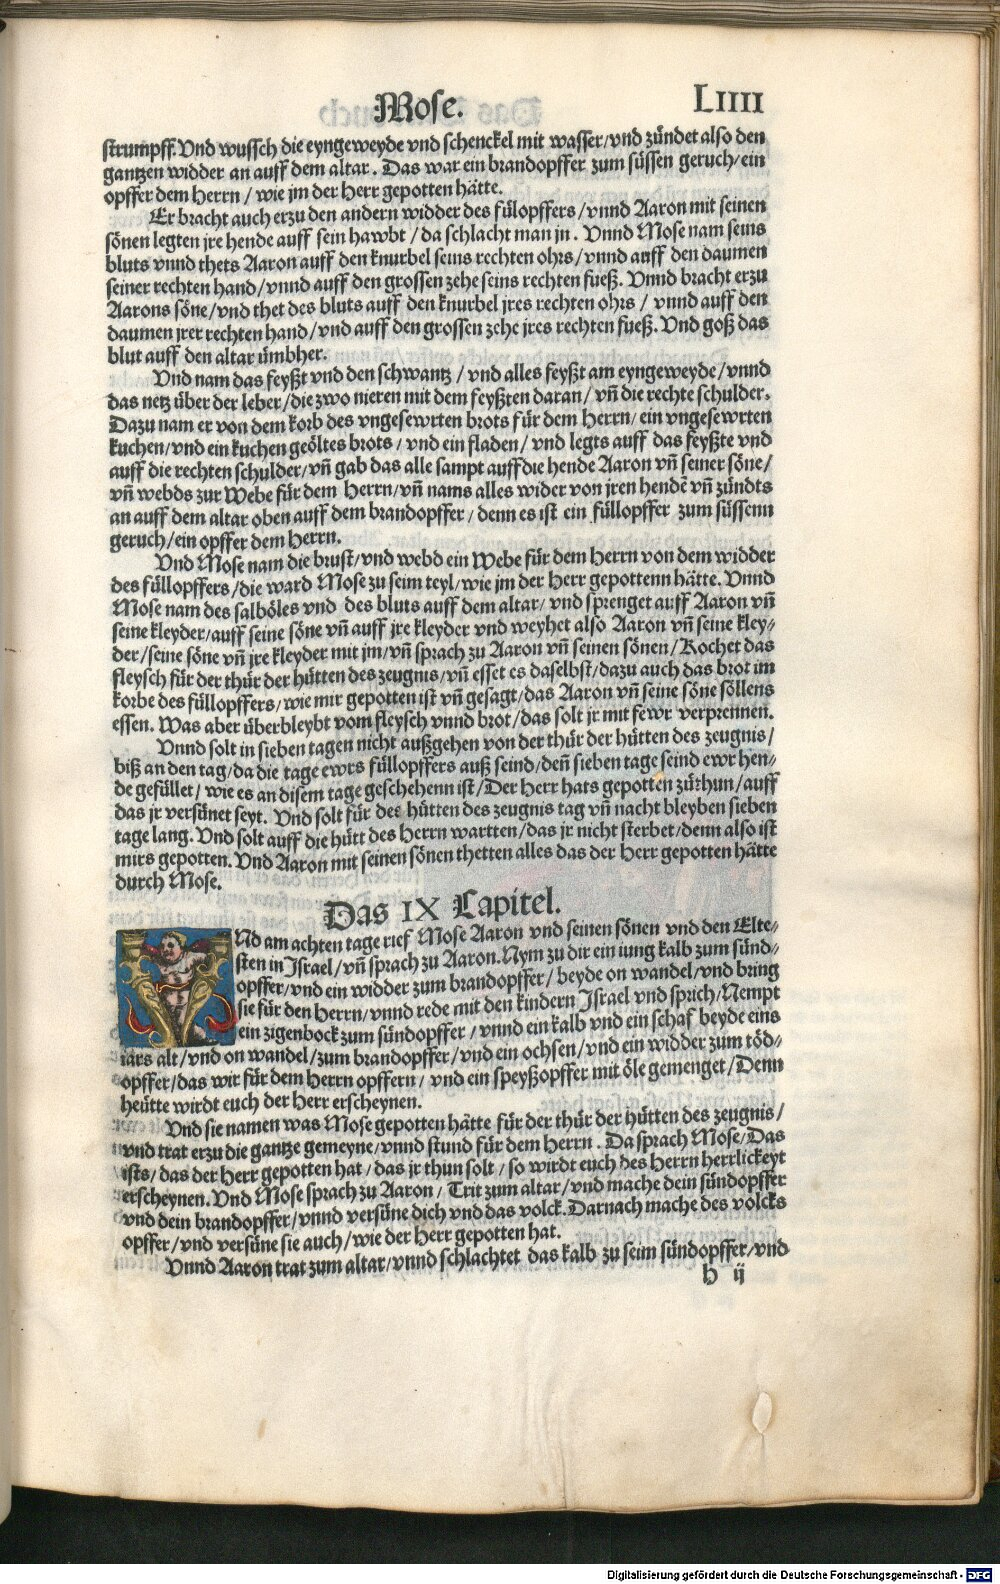 Mose. LIIII
strumpff. Vnd wussch die eyngeweyde vnd schenckel mit wasser/vnd zündet also den
gantzen widder an auff dem altar. Das war ein brandopffer zum süssen geruch/ein
opffer dem Herrn/wie jm der Herr gepotten hätte.
Er bracht auch erzu den andern widder des fülopffers/vnnd Aaron mit seinen
sönen legten jre hende auff sein hawbt/da schlacht man jn. Vnnd Mose nam seins
bluts vnnd thets Aaron auff den knurbel seins rechten ohrs/vnnd auff den daumen
seiner rechten hand/vnnd auff den grossen zehe seins rechten fueß. Vnnd bracht erzu
Aarons söne/vnd thet des bluts auff den knurbel jres rechten ohrs/vnnd auff den
daumen jrer rechten hand/vnd auff den grossen zehe jres rechten fueß. Vnd goß das
blut auff den altar ümbher.
Vnd nam das feyßt vnd den schwantz/vnd alles feyßt am eyngeweyde/vnnd
das netz über der leber/die zwo nieren mit dem feyßten daran/vñ die rechte schulder.
Dazu nam er von dem korb des vngesewrten brots für dem Herrn/ein vngesewrten
kuchen/vnd ein kuchen geöltes brots/vnd ein fladen/vnd legts auff das feyßte vnd
auff die rechten schulder/vñ gab das alle sampt auff die hende Aaron vñ seiner söne/
vñ webds zur Webe für dem Herrn/vñ nams alles wider von jren hendẽ vñ zündts
an auff dem altar oben auff dem brandopffer/denn es ist ein füllopffer zum süssenn
geruch/ein opffer dem Herrn.
Vnd Mose nam die brust/vnd webd ein Webe für dem Herrn von dem widder
des füllopffers/die ward Mose zu seim teyl/wie jm der Herr gepottenn hätte. Vnnd
Mose nam des salböles vnd des bluts auff dem altar/vnd sprenget auff Aaron vñ
seine kleyder/auff seine söne vñ auff jre kleyder vnd weyhet also Aaron vñ seine kley-
der/seine söne vñ jre kleyder mit jm/vñ sprach zu Aaron vñ seinen sönen/Kochet das
fleysch für der thür der hütten des zeugnis/vñ esset es daselbst/dazu auch das brot im
korbe des füllopffers/wie mir gepotten ist vñ gesagt/das Aaron vñ seine söne söllens
essen. Was aber überbleybt vom fleysch vnnd brot/das solt jr mit fewr verprennen.
Vnnd solt in sieben tagen nicht außgehen von der thür der hütten des zeugnis/
biß an den tag/da die tage ewrs füllopffers auß seind/deñ sieben tage seind ewr hen-
de gefüllet/wie es an disem tage geschehenn ist/Der Herr hats gepotten zůthun/auff
das jr versünet seyt. Vnd solt für der hütten des zeugnis tag vñ nacht bleyben sieben
tage lang. Vnd solt auff die hütt des Herrn wartten/das jr nicht sterbet/denn also ist
mirs gepotten. Vnd Aaron mit seinen sönen thetten alles das der Herr gepotten hätte
durch Mose.
Das IX Capitel.
VNd am achten tage rief Mose Aaron vnd seinen sönen vnd den Elte-
sten in Israel/vñ sprach zu Aaron. Nym zu dir ein iung kalb zum sünd-
opffer/vnd ein widder zum brandopffer/beyde on wandel/vnd bring
sie für den Herrn/vnnd rede mit den kindern Israel vnd sprich/Nempt
ein zigenbock zum sündopffer/vnnd ein kalb vnd ein schaf beyde eins
iars alt/vnd on wandel/zum brandopffer/vnd ein ochsen/vnd ein widder zum töd-
opffer/das wir für dem Herrn opffern/vnd ein speyßopffer mit öle gemenget/Denn
heütte wirdt euch der Herr erscheynen.
Vnd sie namen was Mose gepotten hätte für der thür der hütten des zeugnis/
vnd trat erzu die gantze gemeyne/vnnd stund für dem Herrn. Da sprach Mose/Das
ists/das der Herr gepotten hat/das jr thun solt/so wirdt euch des Herrn herrlickeyt
erscheynen. Vnd Mose sprach zu Aaron/Trit zum altar/vnd mache dein sündopffer
vnd dein brandopffer/vnnd versüne dich vnd das volck. Darnach mache des volcks
opffer/vnd versüne sie auch/wie der Herr gepotten hat.
Vnnd Aaron trat zum altar/vnnd schlachtet das kalb zu seim sündopffer/vnd
h ij
Digitalisierung gefördert durch die Deutsche Forschungsgemeinschaft - DFG